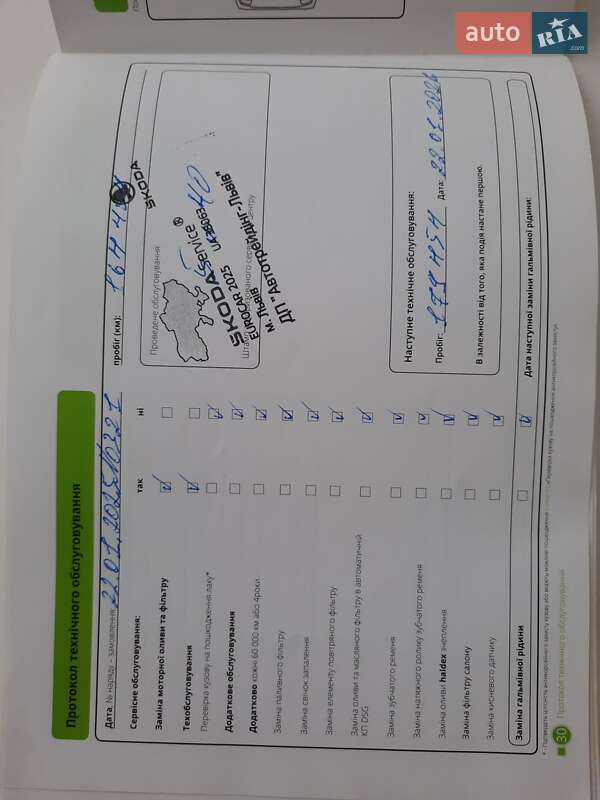 auto RIA.com
Протокол технічного обслуговування
Дата, № наряду – замовлення: 22.01.2025
пробіг (км):
Сервісне обслуговування:
так
ні
Заміна моторної оливи та фільтру
Техобслуговування
Перевірка кузову на пошкодження лаку*
Додаткове обслуговування
Додатково кожні 60 000 км або 4роки
Заміна паливного фільтру
Заміна свічок запалення
Заміна елементу повітряного фільтру
Заміна оливи та масляного фільтру в автоматичній
КП DSG
Заміна зубчатого ременя
Заміна натяжного ролику зубчатого ременя
Заміна оливи haldex зчеплення
Заміна фільтру салону
Заміна кисневого датчику
Заміна гальмівної рідини
Дата наступної заміни гальмівної рідини:
Проведене обслуговування
SKODA
SKODA service®
EUROCAR 2025
м. Львів
ДП "Автотрейдінг-Львів"
Наступне технічне обслуговування:
Пробіг: 179454 Дата: 22.01.2026
В залежності від того, яка подія настане першою.
30 Протокол технічного обслуговування